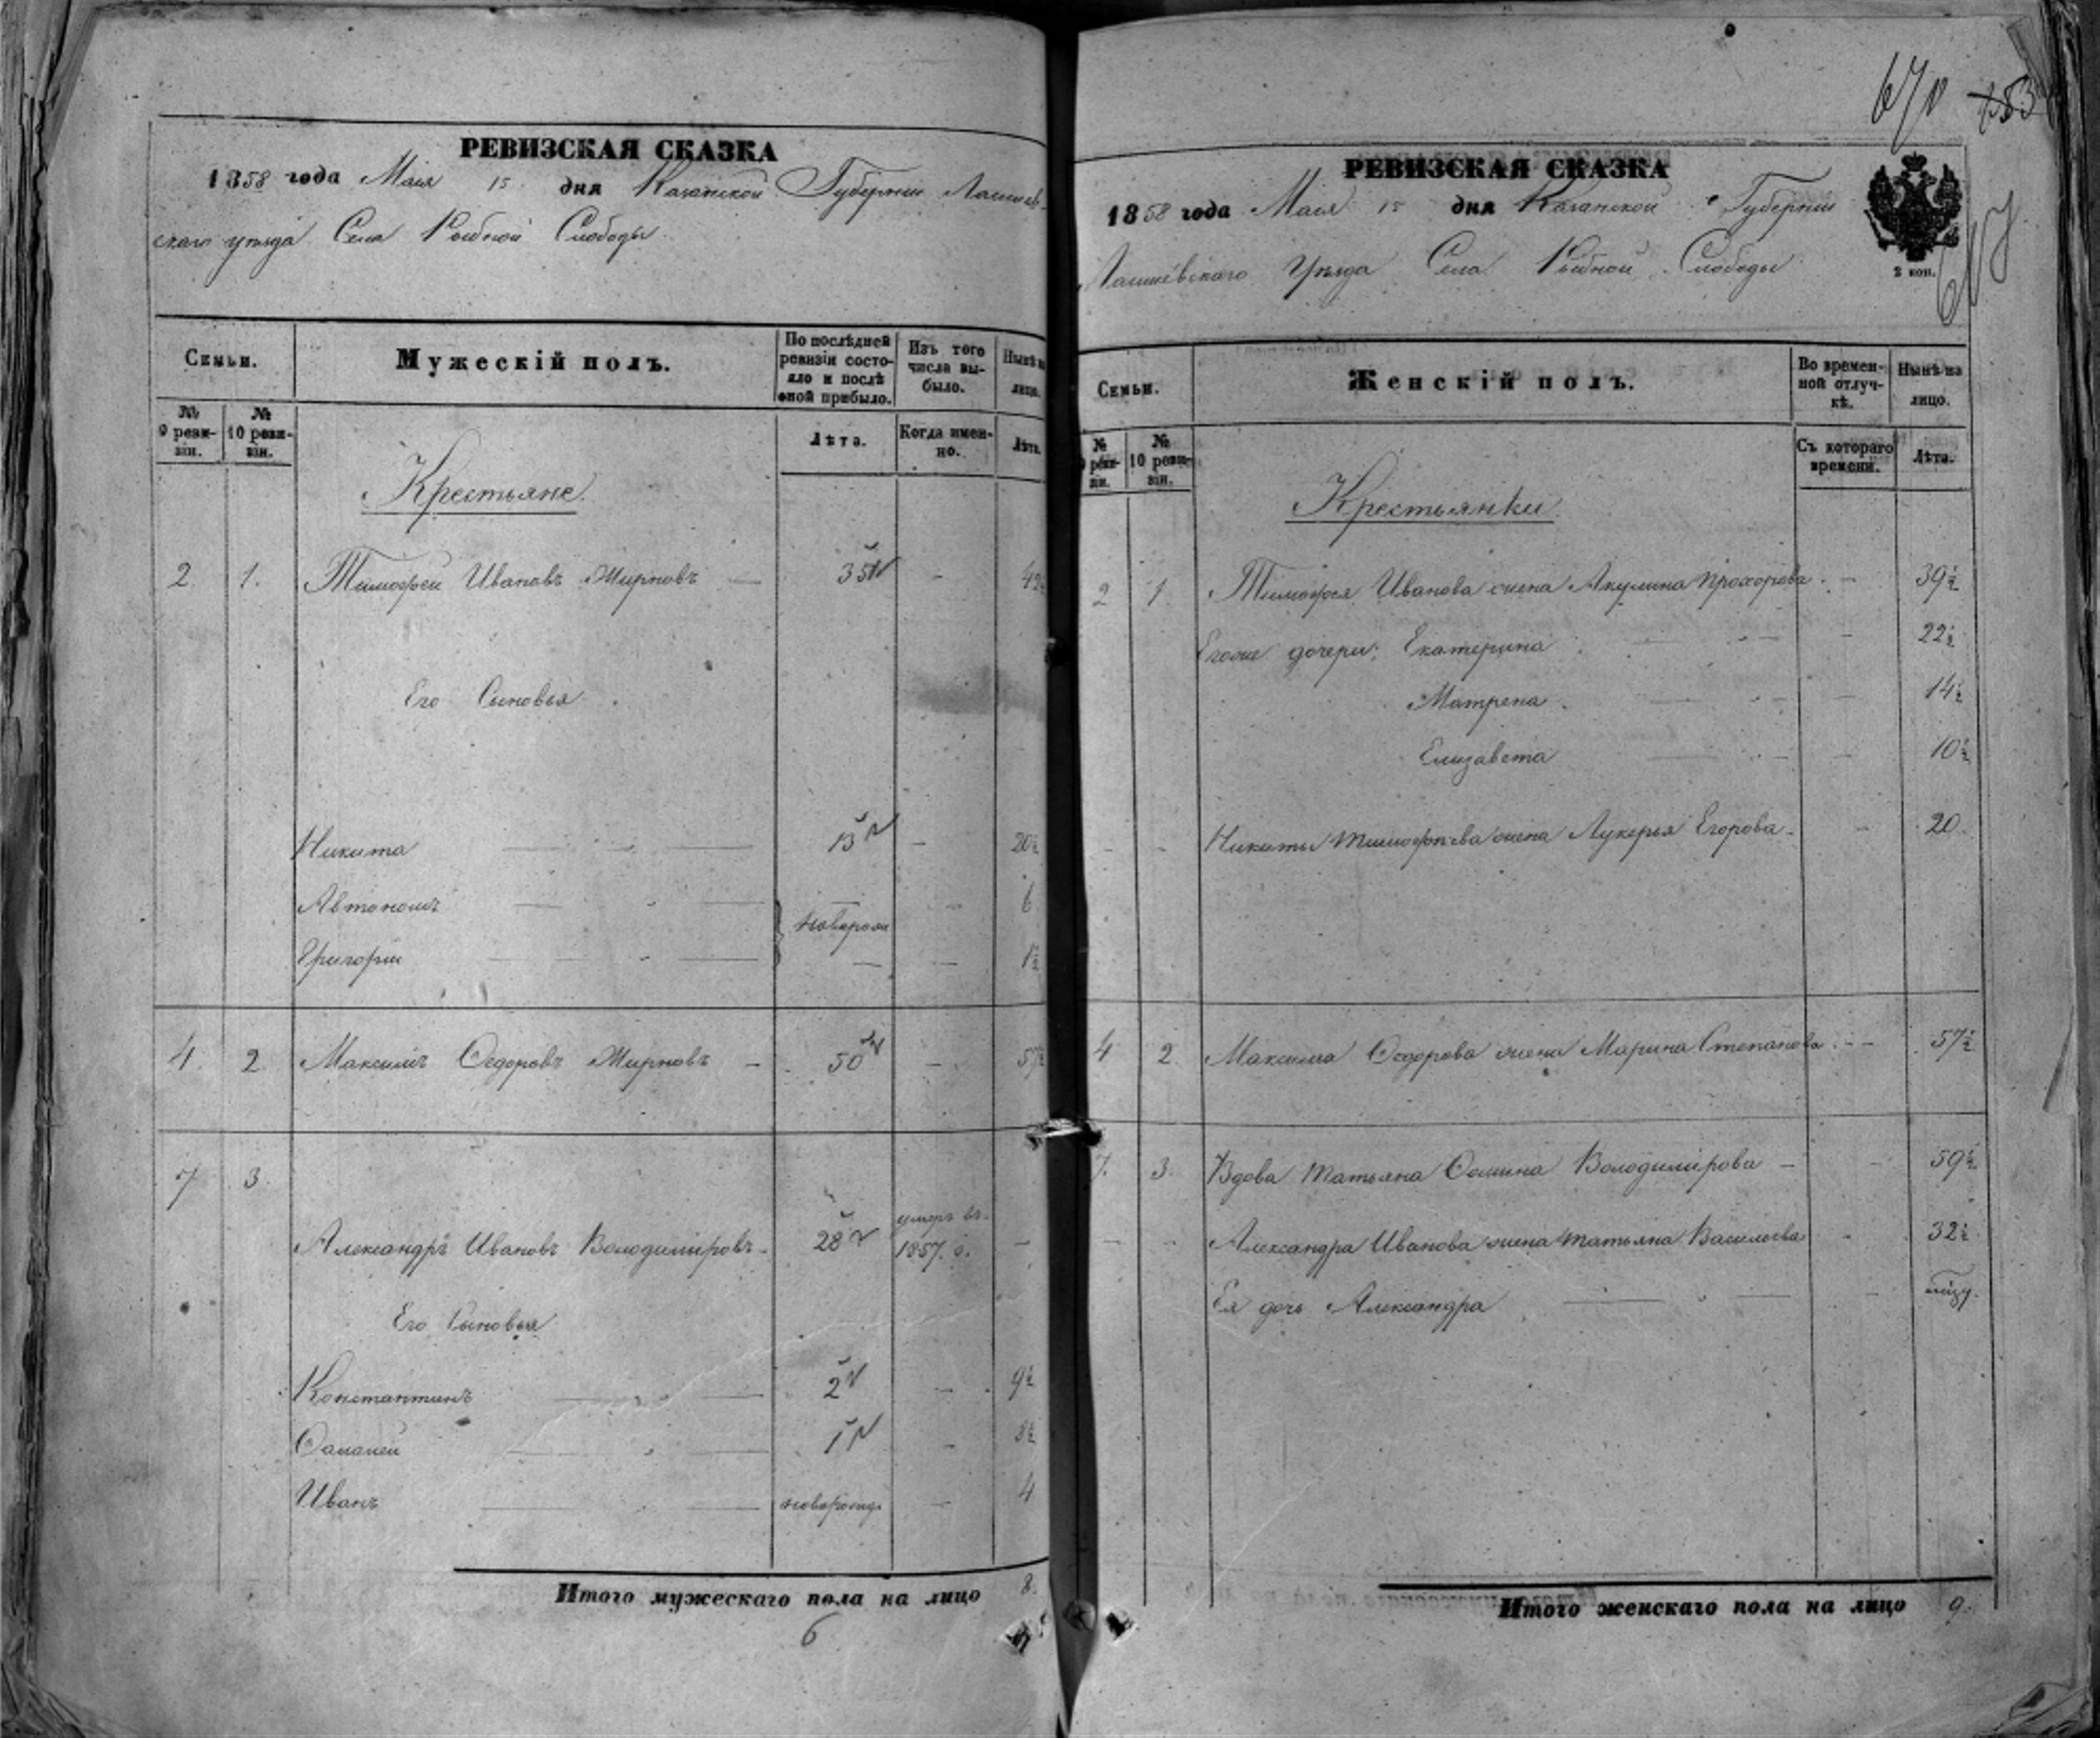 РЕВИЗСКАЯ СКАЗКА
1858 года Маія 15 дня Казанской Губерніи Лаишев-
скаго уѣзда Села Рыбной Слободы
Семьи.
Мужескій полъ.
По послѣдней ревизіи состояло и послѣ оной прибыло.
Изъ того числа выбыло.
Нынѣ на лицо.
№ 9 ревизіи.
№ 10 ревизіи.
Лѣта.
Когда именно.
Лѣта.
Крестьяне.
2. 1. Тимофей Ивановъ Мирновъ — 35 - 42½
Его Сыновья
Никита 13 - 20½
Автономъ — 6
Григорій новорож — 1½
4. 2. Максимъ Ѳедоровъ Мирновъ - 50 - 57½
7 3.
Александръ Ивановъ Володиміровъ 28 умеръ въ 1857. -
Его Сыновья
Константинъ 2 - 9½
1 - 8½
Иванъ новорожд. - 4
Итого мужескаго пола на лицо 8.
6
670
67
РЕВИЗСКАЯ СКАЗКА
1858 года Маія 15 дня Казанской Губерніи
Лаишевскаго Уѣзда Села Рыбной Слободы
2 коп.
Семьи.
Женскій полъ.
Во временной отлучкѣ.
Нынѣ на лицо.
№ 9 ревизіи.
№ 10 ревизіи.
Съ котораго времени.
Лѣта.
Крестьянки
2 1. Тимофея Иванова жена Акулина Прохорова - 39½
Егоже дочери: Екатерина - 22½
Матрена - 14½
Елизавета - 10½
- - Никиты Тимофѣева жена Лукерья Егорова - 20.
4 2. Максима Ѳедорова жена Марина Степанова - - 57½
7. 3. Вдова Татьяна Ѳомина Володимірова - 59½
- - Александра Иванова жена Татьяна Васильева - 32½
Ея дочь Александра -
Итого женскаго пола на лицо 9.